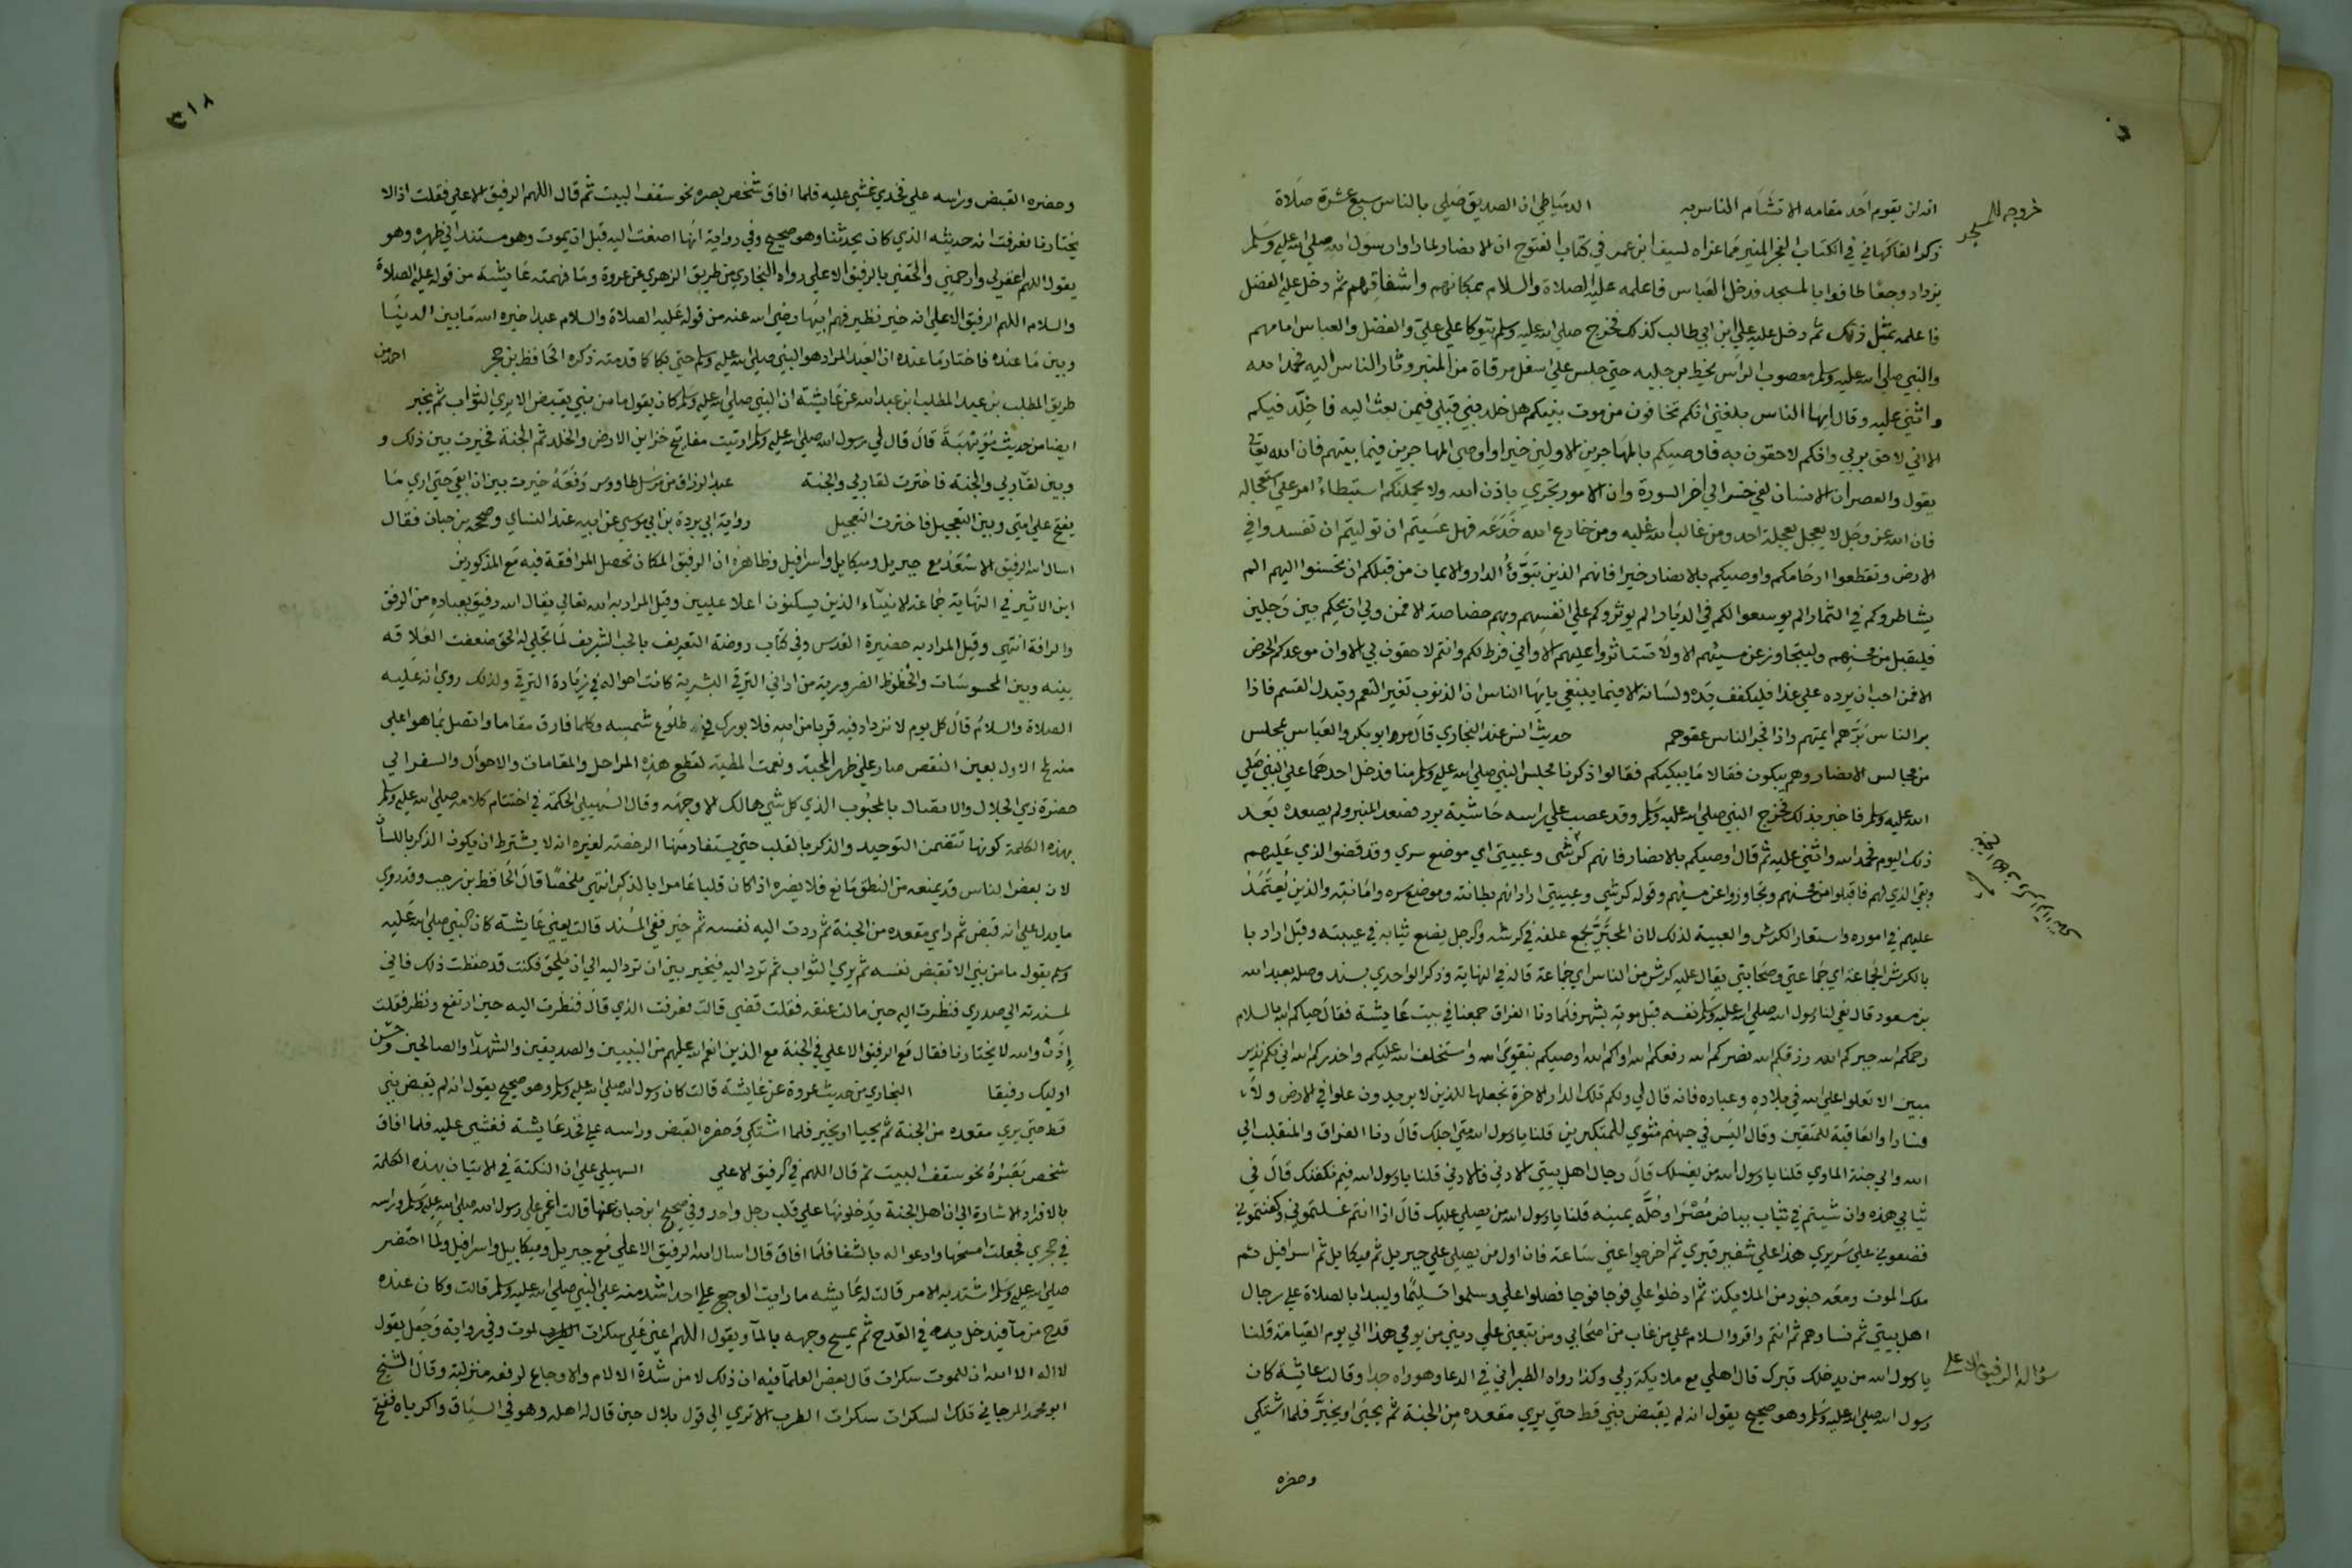 خروجه للمسجد
انه لن يقوم احد مقامه الا تشام الناس به الدمياطي ان الصديق صلي بالناس سبع عشرة صلاة
ذكر الفاكهاني في الكتاب الفجر المنير مما عزاه لسيف ابن عمر في كتاب الفتوح ان الانصار لما راوا رسول الله صلي الله عليه وسلم
يزداد وجعا طافوا بالمسجد فدخل العباس فاعلمه عليه الصلاة والسلام بمكانهم واشفاقهم ثم دخل عليه الفضل
فاعلمه بمثل ذلك ثم دخل عليه علي ابن ابي طالب كذلك فخرج صلي الله عليه وسلم يتوكا علي علي والفضل والعباس امامهم
والنبي صلي الله عليه وسلم معصوب الراس يخط برجليه حتي جلس علي اسفل مرقاة من المنبر وثار الناس اليه فحمد الله
واثني عليه وقال ايها الناس بلغني انكم تخافون من موت نبيكم هل خلد نبي قبلي فيمن بعث اليه فاخلد فيكم
الا اني لاحق بربي وانكم لاحقون به فاوصيكم بالمهاجرين الاولين خيرا واوصي المهاجرين فيما بينهم فان الله تعالي
يقول والعصر ان الانسان لفي خسر الي اخر السورة وان الامور تجري باذن الله ولا يحملنكم استبطاء امر علي استعجاله
فان الله عز وجل لا يعجل بعجلة احد ومن غالب الله غلبه ومن خادع الله خدعه فهل عسيتم ان توليتم ان تفسدوا في
الارض وتقطعوا ارحامكم واوصيكم بالانصار خيرا فانهم الذين تبوؤا الدار والايمان من قبلكم ان تحسنوا اليهم الم
يشاطروكم في الثمار الم يوسعوا لكم في الديار الم يوثروكم علي انفسهم وبهم خصاصة الا فمن ولي ان يحكم بين رجلين
فليقبل من محسنهم وليتجاوز عن مسيئهم الا ولا تستاثروا عليهم الا واني فرط لكم وانتم لاحقون بي الا وان موعدكم الحوض
الا فمن احب ان يرده علي غدا فليكفف يده ولسانه الا فيما ينبغي يا يها الناس ان الذنوب تغير النعم وتبدل القسم فاذا
بر الناس برهم ايمتهم واذا فجر الناس عقوهم حديث انس عند البخاري قال مر ابو بكر والعباس بمجلس
من مجالس الانصار وهم يبكون فقالا ما يبكيكم فقالوا ذكرنا مجلس النبي صلي الله عليه وسلم منا فدخل احدهما علي النبي صلي
الله عليه وسلم فاخبره بذلك فخرج النبي صلي الله عليه وسلم وقد عصب علي راسه حاشية برد فصعد المنبر ولم يصعده بعد
ذلك اليوم فحمد الله واثني عليه ثم قال اوصيكم بالانصار فانهم كرشي وعيبتي اي موضع سري وقد قضوا الذي عليهم
وبقي الذي لهم فاقبلوا من محسنهم وتجاوزوا عن مسيئهم وقوله كرشي وعيبتي اراد انهم بطانته وموضع سره وامانته والذين يعتمد
عليهم في اموره واستعار الكرش والعيبة لذلك لان المجتر يجمع علفه في كرشه والرجل يضع ثيابه في عيبته وقيل اراد با
بالكرش الجماعة اي جماعتي وصحابتي يقال عليه كرش من الناس اي جماعة قاله في النهاية وذكر الواحدي بسند وصله بعبد الله
بن مسعود قال نعي لنا رسول الله صلي الله عليه وسلم نفسه قبل موته بشهر فلما دنا الفراق جمعنا في بيت عايشة فقال حياكم الله بالسلام
رحمكم الله جبركم الله رزقكم الله نصركم الله رفعكم الله اواكم الله اوصيكم بتقوي الله واستخلف الله عليكم واحذركم الله اني لكم نذير
مبين الا تعلوا علي الله في بلاده وعباده فانه قال لي ولكم تلك الدار الاخرة نجعلها للذين لا يريدون علوا في الارض ولا
فسادا والعاقبة للمتقين وقال اليس في جهنم مثوي للمتكبرين قلنا يا رسول الله متي اجلك قال دنا الفراق والمنقلب الي
الله والي جنة الماوي قلنا يا رسول الله من يغسلك قال رجال اهل بيتي الادني فالادني قلنا يا رسول الله فيم نكفنك قال في
ثيابي هذه وان شيتم في ثياب بياض مصر او حلة يمنية قلنا يا رسول الله من يصلي عليك قال اذا انتم غسلتموني وكفنتموني
فضعوني علي سريري هذا علي شفير قبري ثم اخرجوا عني ساعة فان اول من يصلي علي جبريل ثم ميكايل ثم اسرافيل ثم
ملك الموت ومعه جنود من الملايكة ثم ادخلوا علي فوجا فوجا فصلوا علي وسلموا تسليما وليبدا بالصلاة علي رجال
اهل بيتي ثم نساوهم ثم انتم واقروا السلام علي من غاب من اصحابي ومن تبعني علي ديني من يومي هذا الي يوم القيامة قلنا
سؤاله الرفيق الاعلي
يا رسول الله من يدخلك قبرك قال اهلي مع ملايكة ربي وكذا رواه الطبراني في الدعا وهو واه جدا وقالت عايشة كان
رسول الله صلي الله عليه وسلم وهو صحيح يقول انه لم يقبض نبي قط حتي يري مقعده من الجنة ثم يحيي او يخير فلما اشتكي
وحضره
٣١٨
وحضره القبض وراسه علي فخدي غشي عليه فلما افاق شخص بصره نحو سقف البيت ثم قال اللهم الرفيق الاعلي فقلت اذا لا
يختارنا فعرفت انه حديثه الذي كان يحدثنا وهو صحيح وفي رواية انها اصغت اليه قبل ان يموت وهو مستند الي ظهره وهو
يقول اللهم اغفر لي وارحمني والحقني بالرفيق الاعلي رواه البخاري من طريق الزهري عن عروة وما فهمته عايشة من قوله عليه الصلاة
والسلام اللهم الرفيق الاعلي انه خير نظير فهم ابيها رضي الله عنه من قوله عليه الصلاة والسلام عبدا خيره الله ما بين الدنيا
وبين ما عنده فاختار ما عنده ان العبد المراد هو النبي صلي الله عليه وسلم حتي بكا كا قدمته ذكره الحافظ بن حجر احمد من
طريق المطلب بن عبد المطلب ابن عبد الله عن عايشة ان النبي صلي الله عليه وسلم كان يقول ما من نبي يقبض الا يري الثواب ثم يخير
ايضا من حديث مويهبة قال قال لي رسول الله صلي الله عليه وسلم اوتيت مفاتيح خزاين الارض والخلد ثم الجنة فخيرت بين ذلك و
وبين لقا ربي والجنة فاخترت لقا ربي والجنة عبد الرزاق من مرسل طاووس رفعه خيرت بين ان ابقي حتي اري ما
يفتح علي امتي وبين التعجيل فاخترت التعجيل رواية ابي بردة بن ابي موسي عن ابيه عند النساي وصححه بن حبان فقال
اسال الله الرفيق الاسعد مع جبريل وميكايل واسرافيل وظاهره ان الرفيق المكان تحصل المرافقة فيه مع المذكورين
ابن الاثير في النهاية جماعة الانبياء الذين يسكنون اعلا عليين وقيل المراد به الله تعالي يقال الله رفيق بعباده من الرفق
والرافة انتهي وقيل المراد به حضيرة القدس وفي كتاب روضة التعريف بالحب الشريف لما تجلي له الحق ضعفت العلاقه
بينه وبين المحسوسات والحظوظ الضرورية من اداني الترقي البشرية كانت احواله في زيادة الترقي ولذلك روي انه عليه
الصلاة والسلام قال كل يوم لا نزداد فيه قربا من الله فلا بورك في طلوع شمسه وكلما فارق مقاما واتصل بما هو اعلي
منه لمح الاول بعين النقص صار علي ظهر المحبة ونعمت المطية لقطع هذه المراحل والمقامات والاحوال والسفر الي
حضرة ذي الجلال والاتصال بالمحبوب الذي كل شي هالك الا وجهه وقال السهيلي الحكمة في اختتام كلامه صلي الله عليه وسلم
بهذه الكلمة كونها تتضمن التوحيد والذكر بالقلب حتي يستفاد منها الرخصة لغيره انه لا يشترط ان يكون الذكر باللسان
لان بعض الناس قد يمنعه من النطق مانع فلا يضره اذا كان قلبا عامرا بالذكر انتهي ملخصا قال الحافظ بن رجب وقد روي
ما يدل علي انه قبض ثم راي مقعده من الجنة ثم ردت اليه نفسه ثم خير ففي المسند قالت يعني عايشة كان النبي صلي الله عليه
وسلم يقول ما من نبي الا تقبض نفسه ثم يري الثواب ثم ترد اليه فيخير بين ان ترد اليه الي ان يلحق فكنت قد حفظت ذلك فاني
لمسندته الي صدري فنظرت اليه حين مالت عنقه فقلت قضي قالت فعرفت الذي قال فنظرت اليه حين ارتفع ونظر فقلت
اذن والله لا يختارنا فقال مع الرفيق الاعلي في الجنة مع الذين انعم الله عليهم من النبيين والصديقين والشهدا والصالحين وحسن
اوليك رفيقا البخاري من حديث عروة عن عايشة قالت كان رسول الله صلي الله عليه وسلم وهو صحيح يقول انه لم يقبض نبي
قط حتي يري مقعده من الجنة ثم يحيا او يخير فلما اشتكي وحضره القبض وراسه علي فخد عايشة فغشي عليه فلما افاق
شخص بصره نحو سقف البيت ثم قال اللهم في الرفيق الاعلي السهيلي علي ان النكتة في الاتيان بهذه الكلمة
بالافراد الاشارة الي ان اهل الجنة يدخلونها علي قلب رجل واحد وفي صحيح ابن حبان عنها قالت اغمي علي رسول الله صلي الله عليه وسلم وراسه
في حجري فجعلت امسحها وادعوا له بالشفا فلما افاق قال اسال الله الرفيق الاعلي مع جبريل وميكاييل واسرافيل ولما احتضر
صلي الله عليه وسلم اشتد به الامر قالت له عايشه ما رايت الوجع علي احد اشد منه علي النبي صلي الله عليه وسلم قالت وكان عنده
قدح من مآ فيدخل يده في القدح ثم يمسح وجهه بالمآ ويقول اللهم اعني علي سكرات الموت وفي رواية وجعل يقول
لا اله الا الله ان للموت سكرات قال بعض العلمآ فيه ان ذلك لا من شدة الالام والاوجاع لرفعه منزلته وقال الشيخ
ابو محمد المرجاني تلك السكرات سكرات الطرب الا تري الي قول بلال حين قال له اهله وهو في السياق واكرباه ففتح